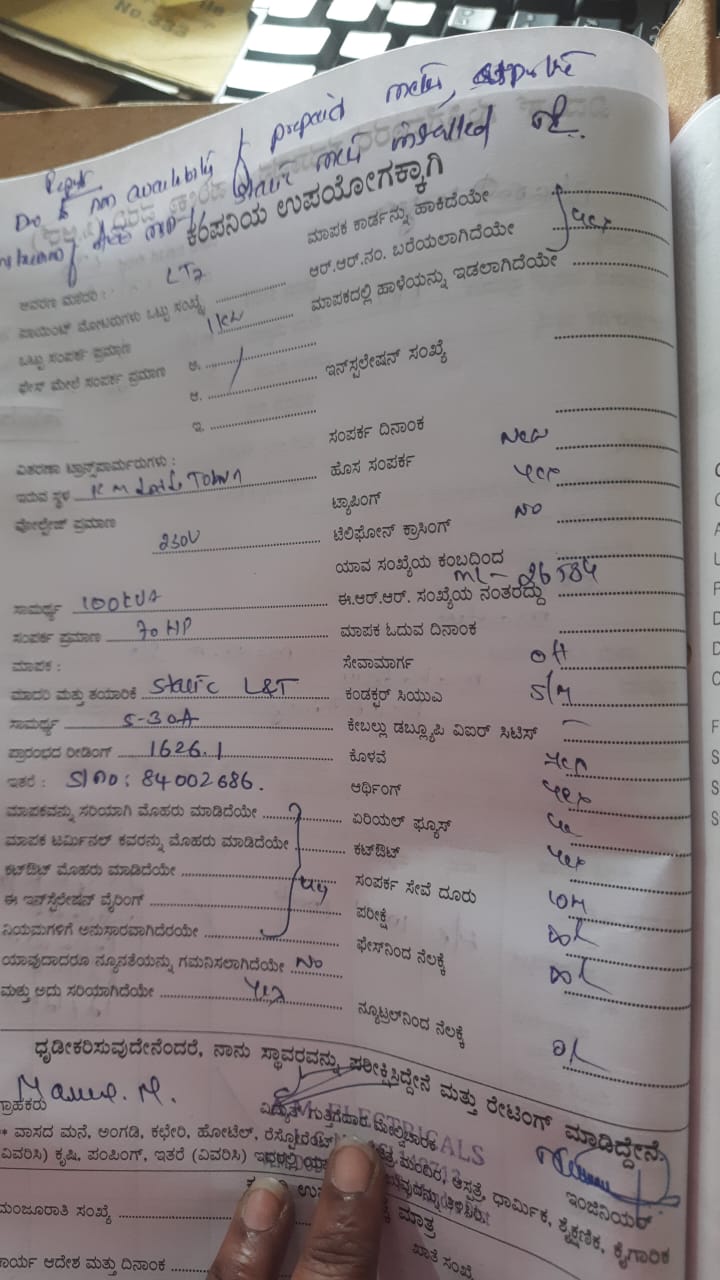 No.333
Report
Due to non availability of prepaid meter,
static meter installed
ಕಂಪನಿಯ ಉಪಯೋಗಕ್ಕಾಗಿ
ಮಾಪಕ ಕಾರ್ಡನ್ನು ಹಾಕಿದೆಯೇ
ಆರ್.ಆರ್.ನಂ. ಬರೆಯಲಾಗಿದೆಯೇ yes
ಮಾಪಕದಲ್ಲಿ ಹಾಳೆಯನ್ನು ಇಡಲಾಗಿದೆಯೇ
LT2
ಪಾಯಿಂಟ್ ಮೋಟರುಗಳು ಒಟ್ಟು ಸಂಖ್ಯೆ
ಒಟ್ಟು ಸಂಪರ್ಕ ಪ್ರಮಾಣ 1kw
ಫೇಸ್ ಮೇಲೆ ಸಂಪರ್ಕ ಪ್ರಮಾಣ ಅ.
ಆ.
ಇ.
ಇನ್‌ಸ್ಟಲೇಷನ್ ಸಂಖ್ಯೆ
ಸಂಪರ್ಕ ದಿನಾಂಕ
ವಿತರಣಾ ಟ್ರಾನ್ಸ್‌ಫಾರ್ಮರುಗಳು :
ಹೊಸ ಸಂಪರ್ಕ New
ಇರುವ ಸ್ಥಳ
ಟ್ಯಾಪಿಂಗ್ yes
ವೋಲ್ಟೇಜ್ ಪ್ರಮಾಣ 230V
ಟೆಲಿಫೋನ್ ಕ್ರಾಸಿಂಗ್ No
ಯಾವ ಸಂಖ್ಯೆಯ ಕಂಬದಿಂದ
ಸಾಮರ್ಥ್ಯ 100kVA
ಈ.ಆರ್.ಆರ್. ಸಂಖ್ಯೆಯ ನಂತರದ್ದು ML- 26584
ಸಂಪರ್ಕ ಪ್ರಮಾಣ 70 HP
ಮಾಪಕ ಓದುವ ದಿನಾಂಕ
ಮಾಪಕ :
ಸೇವಾಮಾರ್ಗ OH
ಮಾದರಿ ಮತ್ತು ತಯಾರಿಕೆ Static L&T
ಕಂಡಕ್ಟರ್ ಸಿಯುಎ S/M
ಸಾಮರ್ಥ್ಯ 5-30A
ಕೇಬಲ್ಲು ಡಬ್ಲ್ಯೂಪಿ ವಿಐರ್ ಸಿಟಿಸ್
ಪ್ರಾರಂಭದ ರೀಡಿಂಗ್ 1626.1
ಕೊಳವೆ yes
ಇತರೆ : Sl no: 84002686.
ಆರ್ಥಿಂಗ್ yes
ಮಾಪಕವನ್ನು ಸರಿಯಾಗಿ ಮೊಹರು ಮಾಡಿದೆಯೇ
ಏರಿಯಲ್ ಫ್ಯೂಸ್
ಮಾಪಕ ಟರ್ಮಿನಲ್ ಕವರನ್ನು ಮೊಹರು ಮಾಡಿದೆಯೇ
ಕಟ್‌ಔಟ್ yes
ಕಟ್‌ಔಟ್ ಮೊಹರು ಮಾಡಿದೆಯೇ
ಸಂಪರ್ಕ ಸೇವೆ ದೂರು 10M
ಈ ಇನ್‌ಸ್ಟಲೇಷನ್ ವೈರಿಂಗ್ yes
ಪರೀಕ್ಷೆ
ನಿಯಮಗಳಿಗೆ ಅನುಸಾರವಾಗಿದೆರಯೇ
ಫೇಸ್‌ನಿಂದ ನೆಲಕ್ಕೆ
ಯಾವುದಾದರೂ ನ್ಯೂನತೆಯನ್ನು ಗಮನಿಸಲಾಗಿದೆಯೇ No
ಮತ್ತು ಅದು ಸರಿಯಾಗಿದೆಯೇ yes
ನ್ಯೂಟ್ರಲ್‌ನಿಂದ ನೆಲಕ್ಕೆ
ಧೃಡೀಕರಿಸುವುದೇನೆಂದರೆ, ನಾನು ಸ್ಥಾವರವನ್ನು ಪರೀಕ್ಷಿಸಿದ್ದೇನೆ ಮತ್ತು ರೇಟಿಂಗ್ ಮಾಡಿದ್ದೇನೆ.
ಗ್ರಾಹಕರು
ವಿದ್ಯುತ್ ಗುತ್ತಿಗೆದಾರ
ELECTRICALS
ಇಂಜಿನಿಯರ್
** ವಾಸದ ಮನೆ, ಅಂಗಡಿ, ಕಛೇರಿ, ಹೋಟೆಲ್, ಮಂದಿರ, ಆಸ್ಪತ್ರೆ, ಧಾರ್ಮಿಕ, ಶೈಕ್ಷಣಿಕ, ಕೈಗಾರಿಕ
(ವಿವರಿಸಿ) ಕೃಷಿ, ಪಂಪಿಂಗ್, ಇತರೆ (ವಿವರಿಸಿ)
ಮಾತ್ರ
ಮಂಜೂರಾತಿ ಸಂಖ್ಯೆ
ಖಾತೆ ಸಂಖ್ಯೆ
ಆದೇಶ ಮತ್ತು ದಿನಾಂಕ